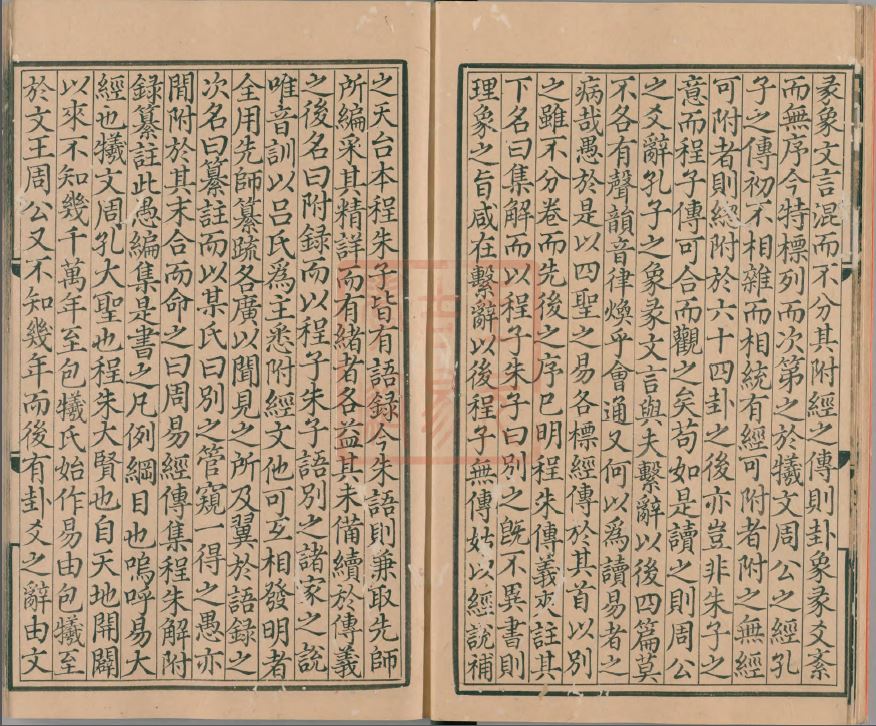 彖象文言混而不分其附經之傳則卦象彖爻紊
而無序今特標列而次第之於犧文周公之經孔
子之傳初不相雜而相統有經可附者附之無經
可附者則緫附於六十四卦之後亦豈非朱子之
意而程子傳可合而觀之矣苟如是讀之則周公
之爻辭孔子之象彖文言與夫繫辭以後四篇莫
不各有聲韻音律煥乎會通又何以為讀易者之
病哉愚於是以四聖之易各標經傳於其首以别
之雖不分卷而先後之序巳明程朱傳義夾註其
下名曰集解而以程子朱子曰别之旣不異書則
理象之旨咸在繫辭以後程子無傳姑以經說補
之天台本程朱子皆有語録今朱語則兼取先師
所編采其精詳而有緒者各益其未備續於傳義
之後名曰附録而以程子朱子語别之諸家之說
唯音訓以吕氏爲主悉附經文他可互相發明者
全用先師纂疏各廣以聞見之所及翼於語録之
次名曰纂註而以某氏曰别之管窺一得之愚亦
間附於其末合而命之曰周易經傳集程朱解附
録纂註此愚編集是書之凡例綱目也嗚呼易大
經也犧文周孔大聖也程朱大賢也自天地開闢
以來不知幾千萬年至包犧氏始作易由包犧至
於文王周公又不知幾年而後有卦爻之辭由文